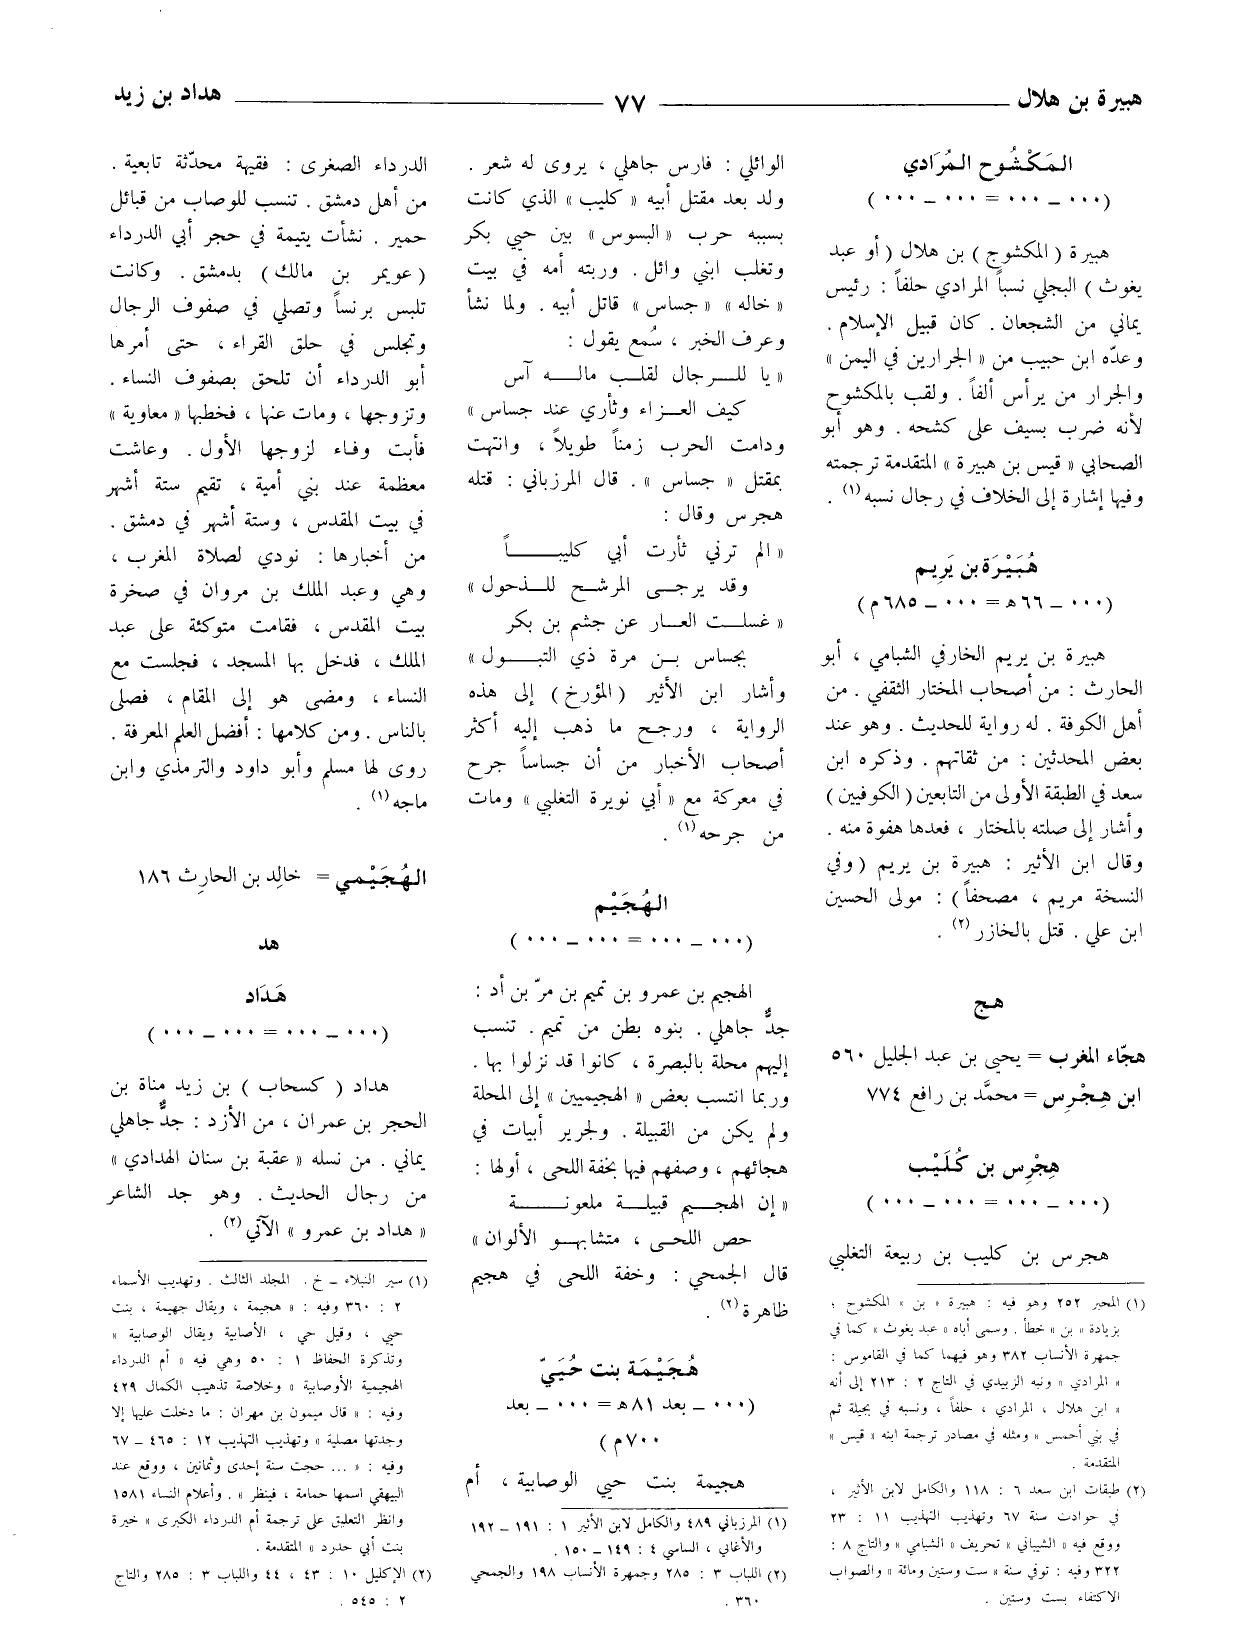 هبيرة بن هلال
٧٧
هداد بن زيد
المَكْشُوح المُرَادي
(٠٠٠ ـ ٠٠٠ = ٠٠٠ ـ ٠٠٠)
هبيرة (المكشوح) بن هلال (أو عبد
يغوث) البجلي نسباً المرادي حلفاً : رئيس
يماني من الشجعان . كان قبيل الإسلام .
وعدّه ابن حبيب من «الجرارين في اليمن»
والجرار من يرأس ألفاً . ولقب بالمكشوح
لأنه ضرب بسيف على كشحه . وهو أبو
الصحابي «قيس بن هبيرة» المتقدمة ترجمته
وفيها إشارة إلى الخلاف في رجال نسبه (١) .
هُبَيْرَة بن يَرِيم
(٠٠٠ ـ ٦٦ هـ = ٠٠٠ ـ ٦٨٥ م)
هبيرة بن يريم الخارفي الشبامي ، أبو
الحارث : من أصحاب المختار الثقفي . من
أهل الكوفة . له رواية للحديث . وهو عند
بعض المحدثين : من ثقاتهم . وذكره ابن
سعد في الطبقة الأولى من التابعين (الكوفيين)
وأشار إلى صلته بالمختار ، فعدها هفوة منه .
وقال ابن الأثير : هبيرة بن يريم (وفي
النسخة مريم ، مصحفاً) : مولى الحسين
ابن علي . قتل بالخازر (٢) .
هج
هجّاء المغرب = يحيى بن عبد الجليل ٥٦٠
ابن هِجْرِس = محمَّد بن رافع ٧٧٤
هِجْرِس بن كُلَيْب
(٠٠٠ ـ ٠٠٠ = ٠٠٠ ـ ٠٠٠)
هجرس بن كليب بن ربيعة التغلبي
(١) المحبر ٢٥٢ وهو فيه : هبيرة «بن» المكشوح ؛
بزيادة «بن» خطأ . وسمى أباه «عبد يغوث» كما في
جمهرة الأنساب ٣٨٢ وهو فيهما كما في القاموس :
«المرادي» ونبه الزبيدي في التاج ٢ : ٢١٣ إلى أنه
«ابن هلال ، المرادي ، حلفاً ، ونسبه في بجيلة ثم
في بني أحمس» ومثله في مصادر ترجمة ابنه «قيس»
المتقدمة .
(٢) طبقات ابن سعد ٦ : ١١٨ والكامل لابن الأثير ،
في حوادث سنة ٦٧ وتهذيب التهذيب ١١ : ٢٣
ووقع فيه «الشيباني» تحريف «الشبامي» والتاج ٨ :
٣٢٢ وفيه : توفي سنة «ست وستين ومائة» والصواب
الاكتفاء بست وستين .
الوائلي : فارس جاهلي ، يروى له شعر .
ولد بعد مقتل أبيه «كليب» الذي كانت
بسببه حرب «البسوس» بين حيي بكر
وتغلب ابني وائل . وربته أمه في بيت
«خاله» «جساس» قاتل أبيه . ولما نشأ
وعرف الخبر ، سُمع يقول :
«يا للرجال لقلب ماله آس
كيف العزاء وثأري عند جساس»
ودامت الحرب زمناً طويلاً ، وانتهت
بمقتل «جساس» . قال المرزباني : قتله
هجرس وقال :
«الم ترني ثأرت أبي كليباً
وقد يرجى المرشح للذحول»
«غسلت العار عن جشم بن بكر
بجساس بن مرة ذي التبول»
وأشار ابن الأثير (المؤرخ) إلى هذه
الرواية ، ورجح ما ذهب إليه أكثر
أصحاب الأخبار من أن جساساً جرح
في معركة مع «أبي نويرة التغلبي» ومات
من جرحه (١) .
الهُجَيْم
(٠٠٠ ـ ٠٠٠ = ٠٠٠ ـ ٠٠٠)
الهجيم بن عمرو بن تميم بن مرّ بن أد :
جدٌّ جاهلي . بنوه بطن من تميم . تنسب
إليهم محلة بالبصرة ، كانوا قد نزلوا بها .
وربما انتسب بعض «الهجيميين» إلى المحلة
ولم يكن من القبيلة . ولجرير أبيات في
هجائهم ، وصفهم فيها بخفة اللحى ، أولها :
«إن الهجيم قبيلة ملعونة
حص اللحى ، متشابهو الألوان»
قال الجمحي : وخفة اللحى في هجيم
ظاهرة (٢) .
هُجَيْمَة بنت حُيَيّ
(٠٠٠ ـ بعد ٨١ هـ = ٠٠٠ ـ بعد
٧٠٠ م)
هجيمة بنت حيي الوصابية ، أم
(١) المرزباني ٤٨٩ والكامل لابن الأثير ١ : ١٩١ ـ ١٩٢
والأغاني ، الساسي ٤ : ١٤٩ ـ ١٥٠ .
(٢) اللباب ٣ : ٢٨٥ وجمهرة الأنساب ١٩٨ والجمحي
٣٦٠ .
الدرداء الصغرى : فقيهة محدّثة تابعية .
من أهل دمشق . تنسب للوصاب من قبائل
حمير . نشأت يتيمة في حجر أبي الدرداء
(عويمر بن مالك) بدمشق . وكانت
تلبس برنساً وتصلي في صفوف الرجال
وتجلس في حلق القراء ، حتى أمرها
أبو الدرداء أن تلحق بصفوف النساء .
وتزوجها ، ومات عنها ، فخطبها «معاوية»
فأبت وفاء لزوجها الأول . وعاشت
معظمة عند بني أمية ، تقيم ستة أشهر
في بيت المقدس ، وستة أشهر في دمشق .
من أخبارها : نودي لصلاة المغرب ،
وهي وعبد الملك بن مروان في صخرة
بيت المقدس ، فقامت متوكئة على عبد
الملك ، فدخل بها المسجد ، فجلست مع
النساء ، ومضى هو إلى المقام ، فصلى
بالناس . ومن كلامها : أفضل العلم المعرفة .
روى لها مسلم وأبو داود والترمذي وابن
ماجه (١) .
الهُجَيْمي = خالِد بن الحارِث ١٨٦
هد
هَدَاد
(٠٠٠ ـ ٠٠٠ = ٠٠٠ ـ ٠٠٠)
هداد (كسحاب) بن زيد مناة بن
الحجر بن عمران ، من الأزد : جدٌّ جاهلي
يماني . من نسله «عقبة بن سنان الهدادي»
من رجال الحديث . وهو جد الشاعر
«هداد بن عمرو» الآتي (٢) .
(١) سير النبلاء ـ خ . المجلد الثالث . وتهذيب الأسماء
٢ : ٣٦٠ وفيه : «هجيمة ، ويقال جهيمة ، بنت
حيي ، وقيل حي ، الأصابية ويقال الوصابية»
وتذكرة الحفاظ ١ : ٥٠ وهي فيه «أم الدرداء
الهجيمية الأوصابية» وخلاصة تذهيب الكمال ٤٢٩
وفيه : «قال ميمون بن مهران : ما دخلت عليها إلا
وجدتها مصلية» وتهذيب التهذيب ١٢ : ٤٦٥ ـ ٦٧
وفيه : «... حجت سنة إحدى وثمانين ، ووقع عند
البيهقي اسمها حمامة ، فينظر» . وأعلام النساء ١٥٨١
وانظر التعليق على ترجمة أم الدرداء الكبرى «خيرة
بنت أبي حدرد» المتقدمة .
(٢) الإكليل ١٠ : ٤٣ ، ٤٤ واللباب ٣ : ٢٨٥ والتاج
٢ : ٥٤٥ .